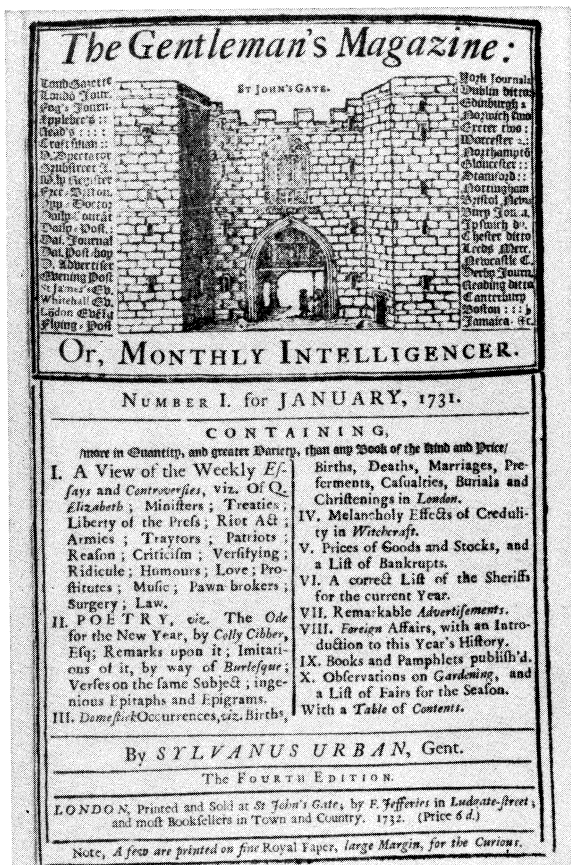 The Gentleman's Magazine:
St JOHN'S GATE.
Lond Gazette
Londō Jour.
Fog's Journ.
Applebee's ::
Read's ::::
Craftsman ::
D. Spectator
Grubstreet J.
Wkly Register
Free-Briton
Hyp-Doctor
Daily Courāt
Daily-Post.
Dai. Journal
Dai. Post-boy
D. Advertiser
Evening Post
St James's Ev.
Whitehall Ev.
Lōdon Evēig
Flying-Post
York Journals
Dublin ditto
Edinburgh
Norwich two
Exeter two :
Worcester
Northamptō
Gloucester ::
Stamford ::
Nottingham
Bristol News
Bury Jou.
Ipswich do.
Chester ditto
Leeds Merc.
Newcastle C.
Derby Journ.
Reading ditto
Canterbury
Boston :::
Jamaica &c.
Or, MONTHLY INTELLIGENCER.
NUMBER I. for JANUARY, 1731.
CONTAINING,
/more in Quantity, and greater Variety, than any Book of the Kind and Price/
I. A View of the Weekly Eſ-
ſays and Controverſies, viz. Of Q.
Elizabeth ; Miniſters ; Treaties ;
Liberty of the Preſs ; Riot Act ;
Armies ; Traytors ; Patriots ;
Reaſon ; Criticiſm ; Verſifying ;
Ridicule ; Humours ; Love ; Pro-
ſtitutes ; Muſic ; Pawn brokers ;
Surgery ; Law.
II. POETRY, viz. The Ode
for the New Year, by Colly Cibber,
Eſq; Remarks upon it ; Imitati-
ons of it, by way of Burleſque ;
Verſes on the ſame Subject ; inge-
nious Epitaphs and Epigrams.
III. Domeſtick Occurrences, viz. Births,
Births, Deaths, Marriages, Pre-
ferments, Caſualties, Burials and
Chriſtenings in London.
IV. Melancholy Effects of Creduli-
ty in Witchcraft.
V. Prices of Goods and Stocks, and
a Liſt of Bankrupts.
VI. A correct Liſt of the Sheriffs
for the current Year.
VII. Remarkable Advertiſements.
VIII. Foreign Affairs, with an Intro-
duction to this Year's Hiſtory.
IX. Books and Pamphlets publiſh'd.
X. Obſervations on Gardening, and
a Liſt of Fairs for the Seaſon.
With a Table of Contents.
By SYLVANUS URBAN, Gent.
The FOURTH EDITION.
LONDON, Printed and Sold at St John's Gate; by F. Jefferies in Ludgate-ſtreet ;
and moſt Bookſellers in Town and Country. 1732. (Price 6 d.)
Note, A few are printed on fine Royal Paper, large Margin, for the Curious.